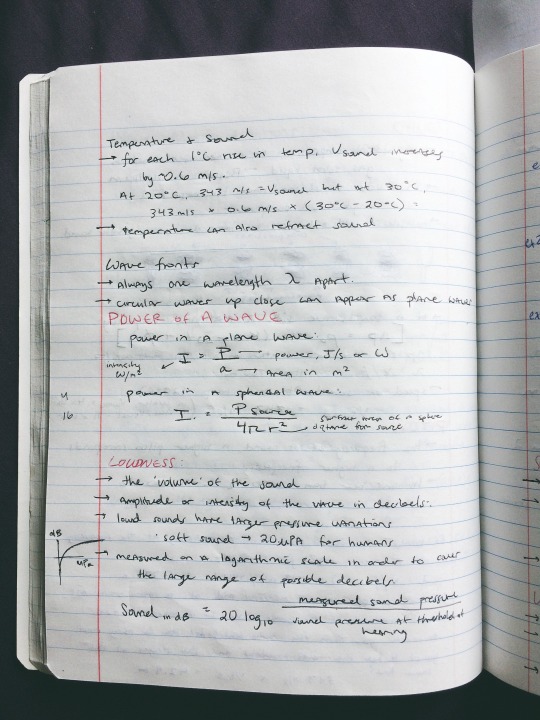 Temperature & Sound
→ for each 1°C rise in temp. Vsound increases
by ~0.6 m/s.
At 20°C, 343 m/s = Vsound but at 30°C,
343 m/s × 0.6 m/s × (30°C - 20°C) =
→ temperature can also refract sound
Wave fronts
→ Always one wavelength λ apart.
→ circular waves up close can appear as plane waves
POWER OF A WAVE
[power in a plane wave:
I = P/a → power, J/s or W
intensity W/m²
→ Area in m²
4
power in a spherical wave:
16
I = Psource / 4πr²
surface area of a sphere
distance for source
LOUDNESS:
→ the 'volume' of the sound
→ amplitude or intensity of the wave in decibels.
→ loud sounds have larger pressure variations
· soft sound → 20μPA for humans
dB
μPA
→ measured on a logarithmic scale in order to cover
the large range of possible decibels.
Sound in dB = 20 log10 measured sound pressure / sound pressure at threshold of hearing